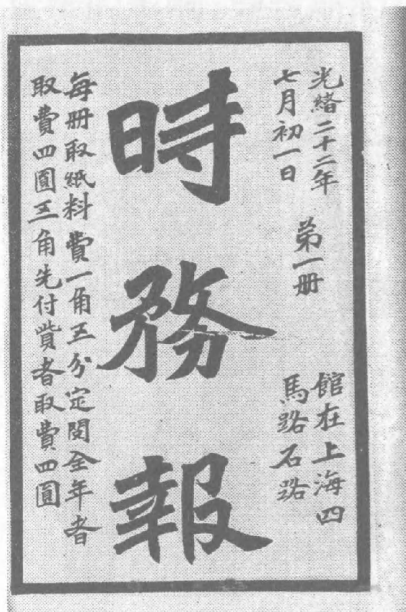 光緒二十二年
七月初一日
第一冊
館在上海四
馬路石路
時務報
每册取紙料費一角五分定閱全年者
取費四圓五角先付貲者取費四圓